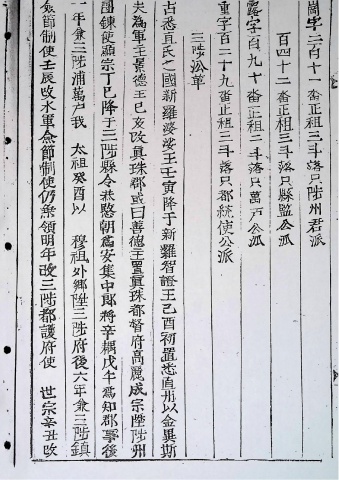 崗字二百十一畓正租三斗落只陟州君派
百四十二畓正租三斗落只縣監公派
露字百九十畓正租三斗落只萬戶公派
重字百二十九畓正租三斗落只都統使公派
三陟沿革
古悉直氏之國新羅婆娑王壬寅降于新羅智證王乙酉初置悉直州以金異斯
夫為軍主景德王已亥改真珠郡或曰善德王置真珠都督府高麗成宗陞陟州
團鍊使顯宗丁巳降于三陟縣令恭愍朝為安集中郎將辛禑戊午為知郡事後
一年兼三陟浦萬戶我 太祖癸酉以 穆祖外鄉陞三陟府後六年兼三陟鎮
僉節制使壬辰改水軍僉節制使仍兼領明年改三陟都護府使 世宗辛丑改